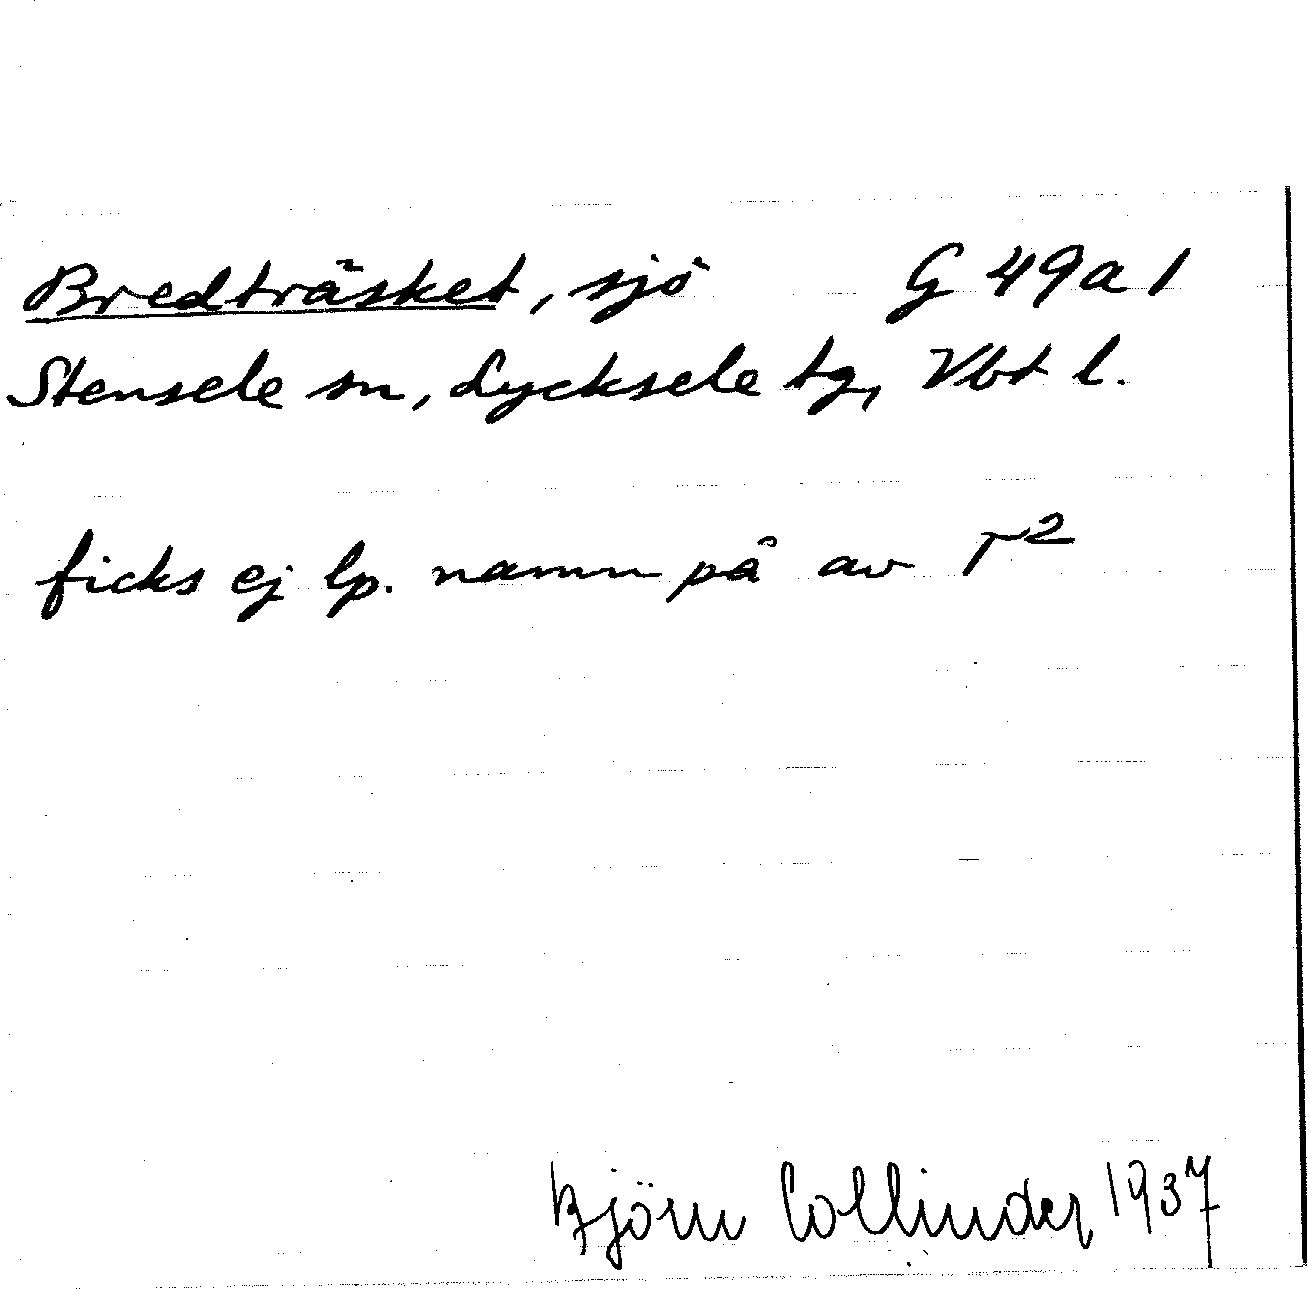 Bredträsket, sjö G 49a 1
Stensele sn, Lycksele tg, Vbt l.
ficks ej lp. namn på av T²
Björn Collinder 1937